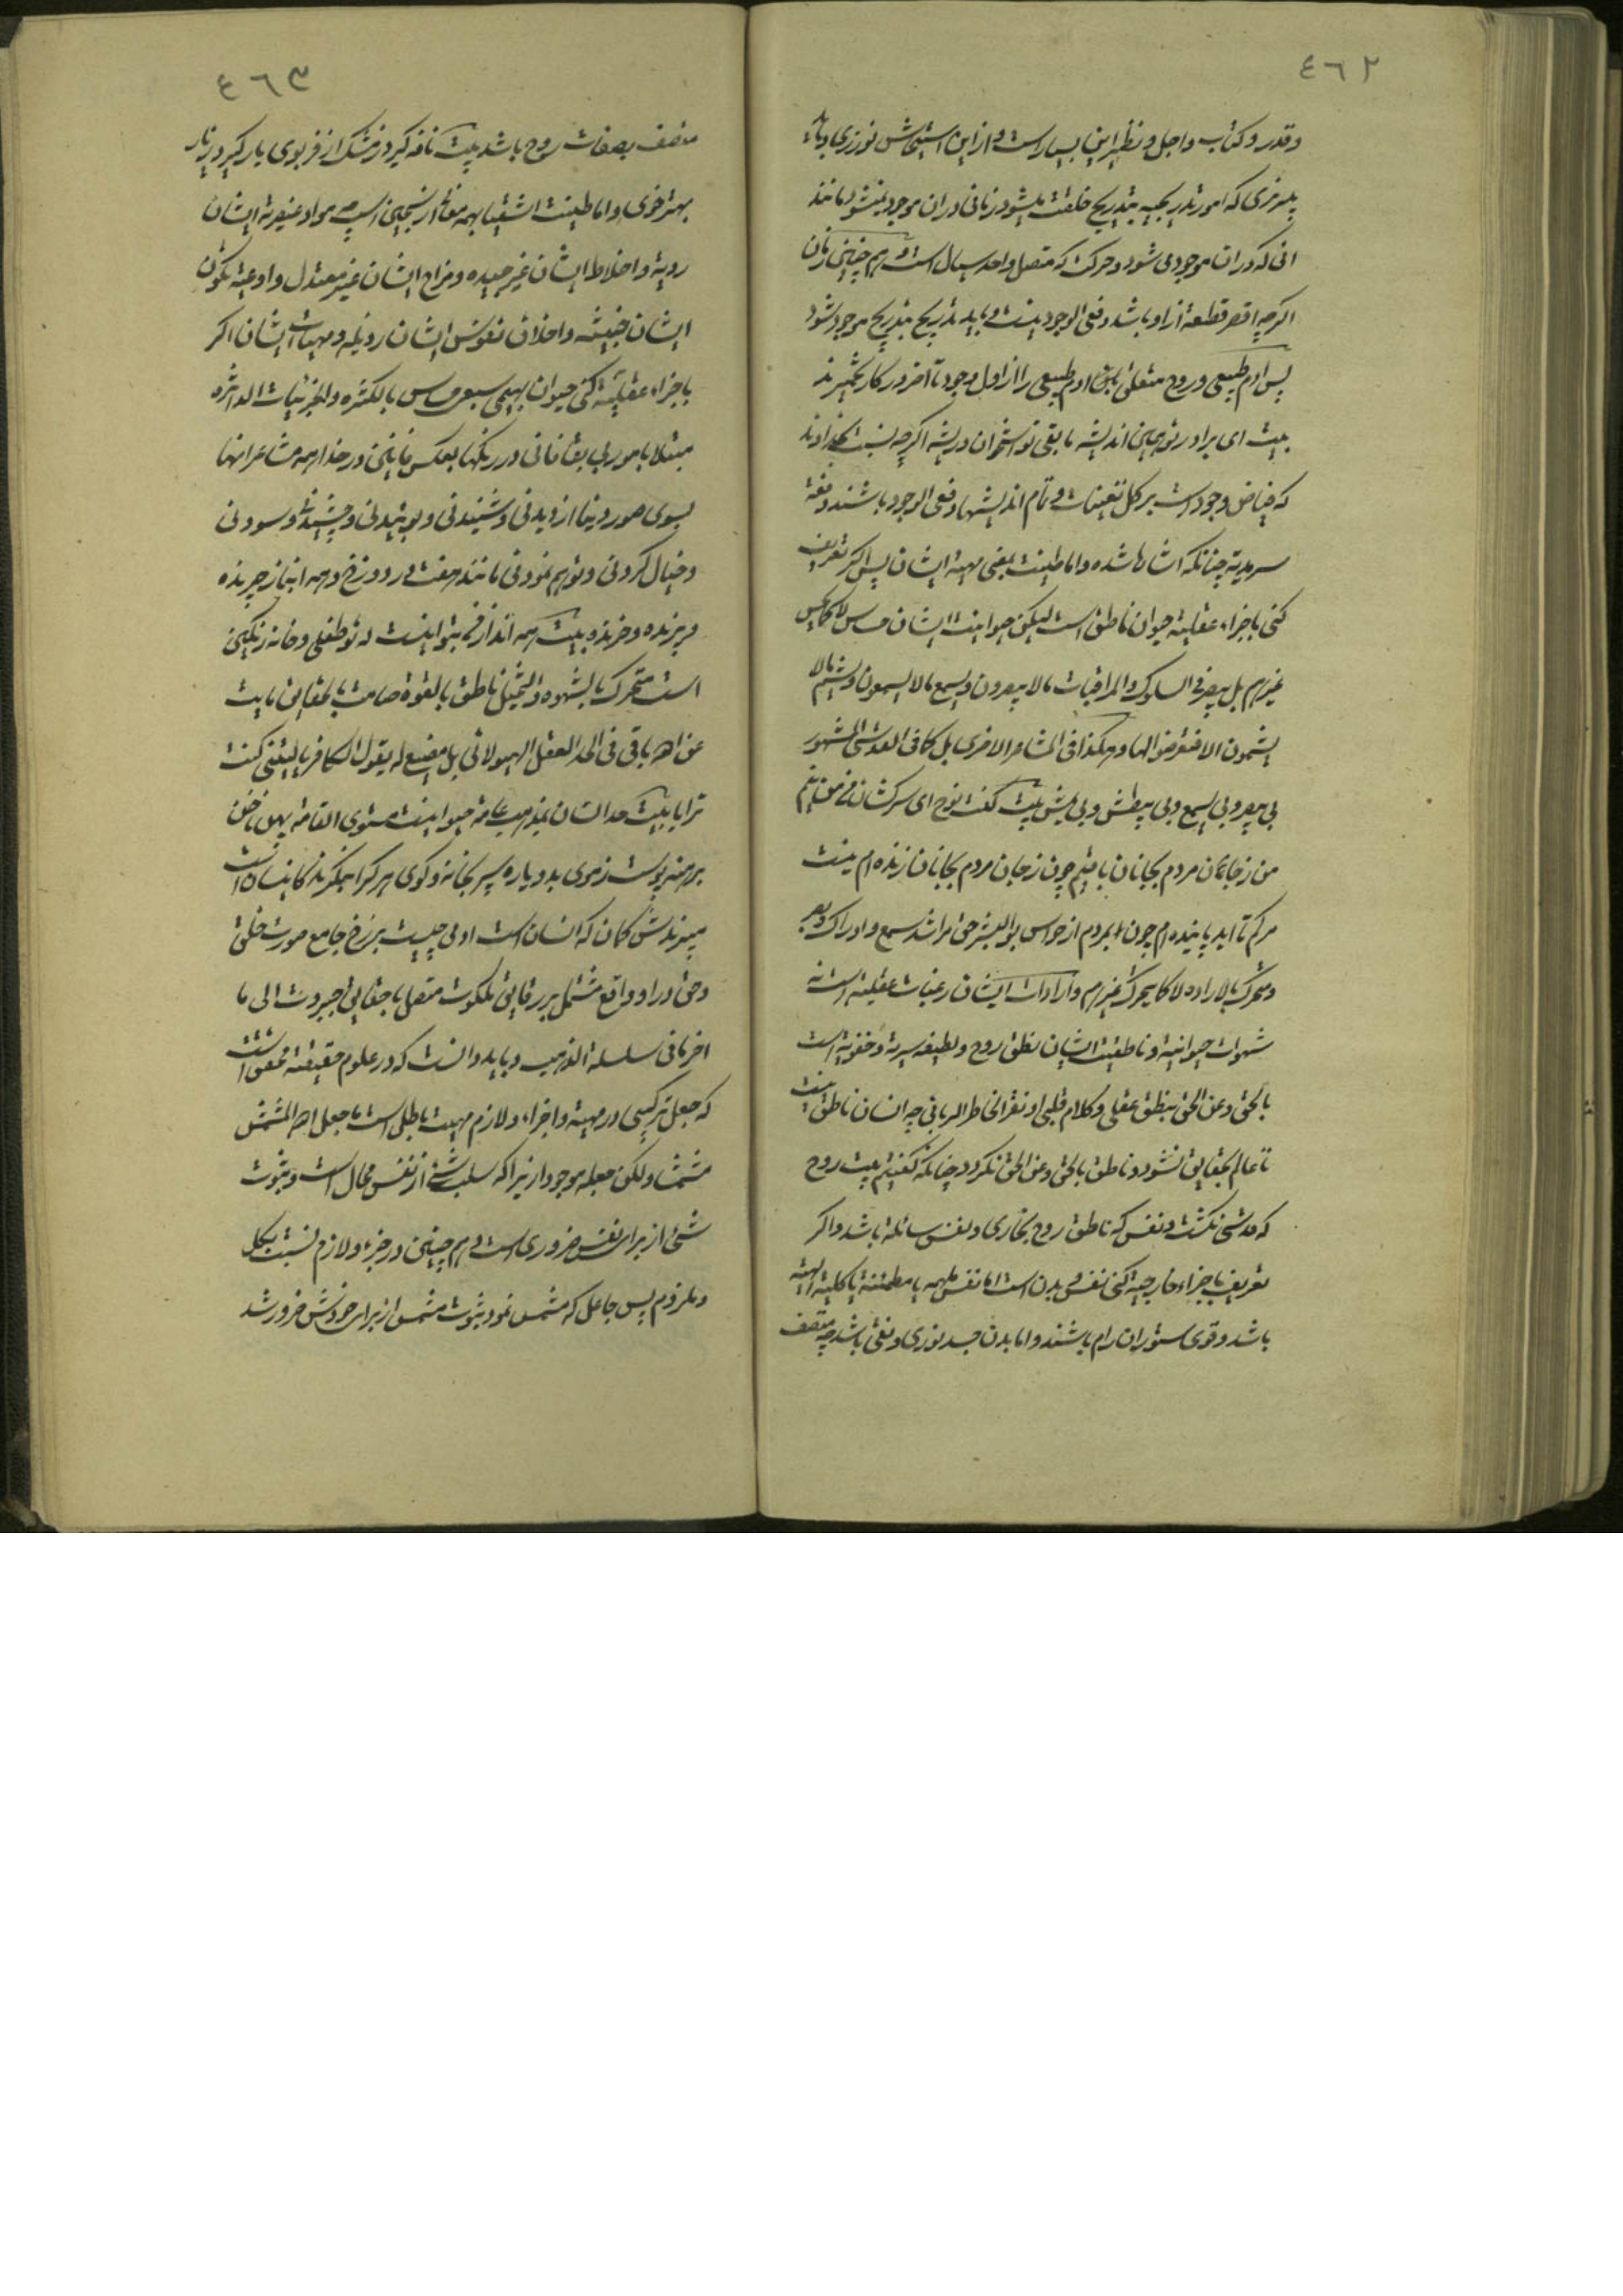 ٤٦٢
و قدر و کتاب و اجل و نظیر این بسیار است و از این استیحاش نورزی و باید
بپرهیزی که امور تدریجیه بتدریج خلقت میشود زمانی دران موجود میشود مانند
انی که دران موجود می شود و حرکت که متصل واحد سیال است و هم چنین زمان
اکرچه اقصر قطعهٔ از او باشد دفعی الوجود نیست و باید بتدریج موجود شود
پس ادم طبیعی و روح متعلق باین ادم طبیعی را از اول وجود تا آخر در کار تخمیرند
بیت ای برادر تو همین اندیشه ما بقی تو استخوان و ریشه اکرچه نسبت بخداوند
که فیاض وجود است بر کل تعینات و تمام اندیشها دفعی الوجود باشند دفعهٔ
سرمدیه چنانکه اشاره شده و اما طینت بمعنی مهیة ایشان پس اکر تعریف
کنی باجزاء عقلیه حیوان ناطق است لیکن حیوانیت ایشان حساس لا کما یحس
غیرهم بل یبصر فی السلوک و المراقبات ما لا یبصرون و یسمع ما لا یسمعون و یشم ما لا
یشمون الا فتعرضوا لها و هکذا فی المشاعر الاخری بل کما فی القدسی المشهور
بی یبصر و بی یسمع و بی یبطش و بی یمشی بیت کفت نوح ای سرکشان من من نیم
من ز جان مردم بجانان باقیم چون ز جان مردم بجانان زنده ام نیست
مرکم تا ابد پاینده ام چون بمردم از حواس بوالبشر حق مرا شد سمع و ادراک و بصر
و متحرک بالاراده لا کما یتحرک غیرهم و ارادات ایشان رغبات عقلیه است نه
شهوات حیوانیه و ناطقیت ایشان نطق روح و لطیفه سریة و خفویه است
بالحق و عن الحق بنطق عقلی و کلام قلبی او نقر الخاطر الربانی چه انسان ناطق نیست
تا عالم بحقایق نشود و ناطق بالحق و عن الحق نکردد چنانکه کفتیم بیت روح
که قدسی نکشت و نفس که ناطق روح بخاری و نفس سائله باشد و اکر
تعریف باجزاء خارجیه کنی نفس و بدن است اما نفس ملهمه یا مطمئنه یا کلیه الهیه
باشد و قوی ستوران رام باشند و اما بدن جسد نوری و نقی باشد چه متصف
٤٦٣
متصف بصفات روح باشد بیت نافه کیرد ز مشک از فر بوی یار کیرد ز یار
بهتر خوی و اما طینت اشقیا بهمه معانی از سجین است مواد عنصریة ایشان
ردیة و اخلاط ایشان غیر جیده و مزاج ایشان غیر معتدل و اوعیه تکون
ایشان خبیثه و اخلاق نفوس ایشان رذیله و مهیات ایشان اکر
باجزاء عقلیه کنی حیوان بهیمی سبعی حساس بالکثره و الجزئیات الداثره
مبتلا بامور بی بقا فانی در رنکها بعکس فانین در خدا همه مشاعر انها
بسوی صور دنیا از دیدنی و شنیدنی و بوئیدنی و چشیدنی و سودنی
و خیال کردنی و توهم نمودنی مانند هفت در دوزخ و همه انباز چرنده
و پرنده و خزنده بیت همه اندرز من بتو اینست که تو طفلی و خانه رنکین
است متحرک بالشهوه و التخیل ناطق بالقوة صامت بالحقایق ثابت
عن اهر باقی فی الحد العقل الهیولانی بل مضیع له یقول الکافر یا لیتنی کنت
ترابا بیت حد انسان بمذهب عامه حیوانیست مستوی القامه پهن ناخن
برهنه پوست ز موی بدو پا ره سپر بخانه و کوی هر کرا بنکرند کاینسان است
میبرندش کمان که انسان است ادمی چیست برزخ جامع صورت خلق
و حق در او واقع مشتمل بر رقایق ملکوت متصل با حقایق جبروت الی ما
اخر ما فی سلسلة الذهب و باید دانست که در علوم حقیقیه محقق است
که جعل ترکیبی در مهیة و اجزاء و لازم مهیت باطل است ما جعل الله المشمش
مشمشا ولکن جعله موجودا زیرا که سلب شئ از نفس محال است و ثبوت
شئ از برای نفس ضروری است و هم چنین در جزء و لازم نسبت بکل
و ملزوم پس جاعل که مشمش نمود ثبوت مشمش از برای خودش ضرور شد